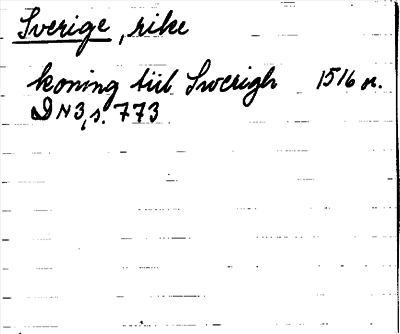 Sverige, rike
koning tiil Swerigh 1516 or.
DN3, s. 773